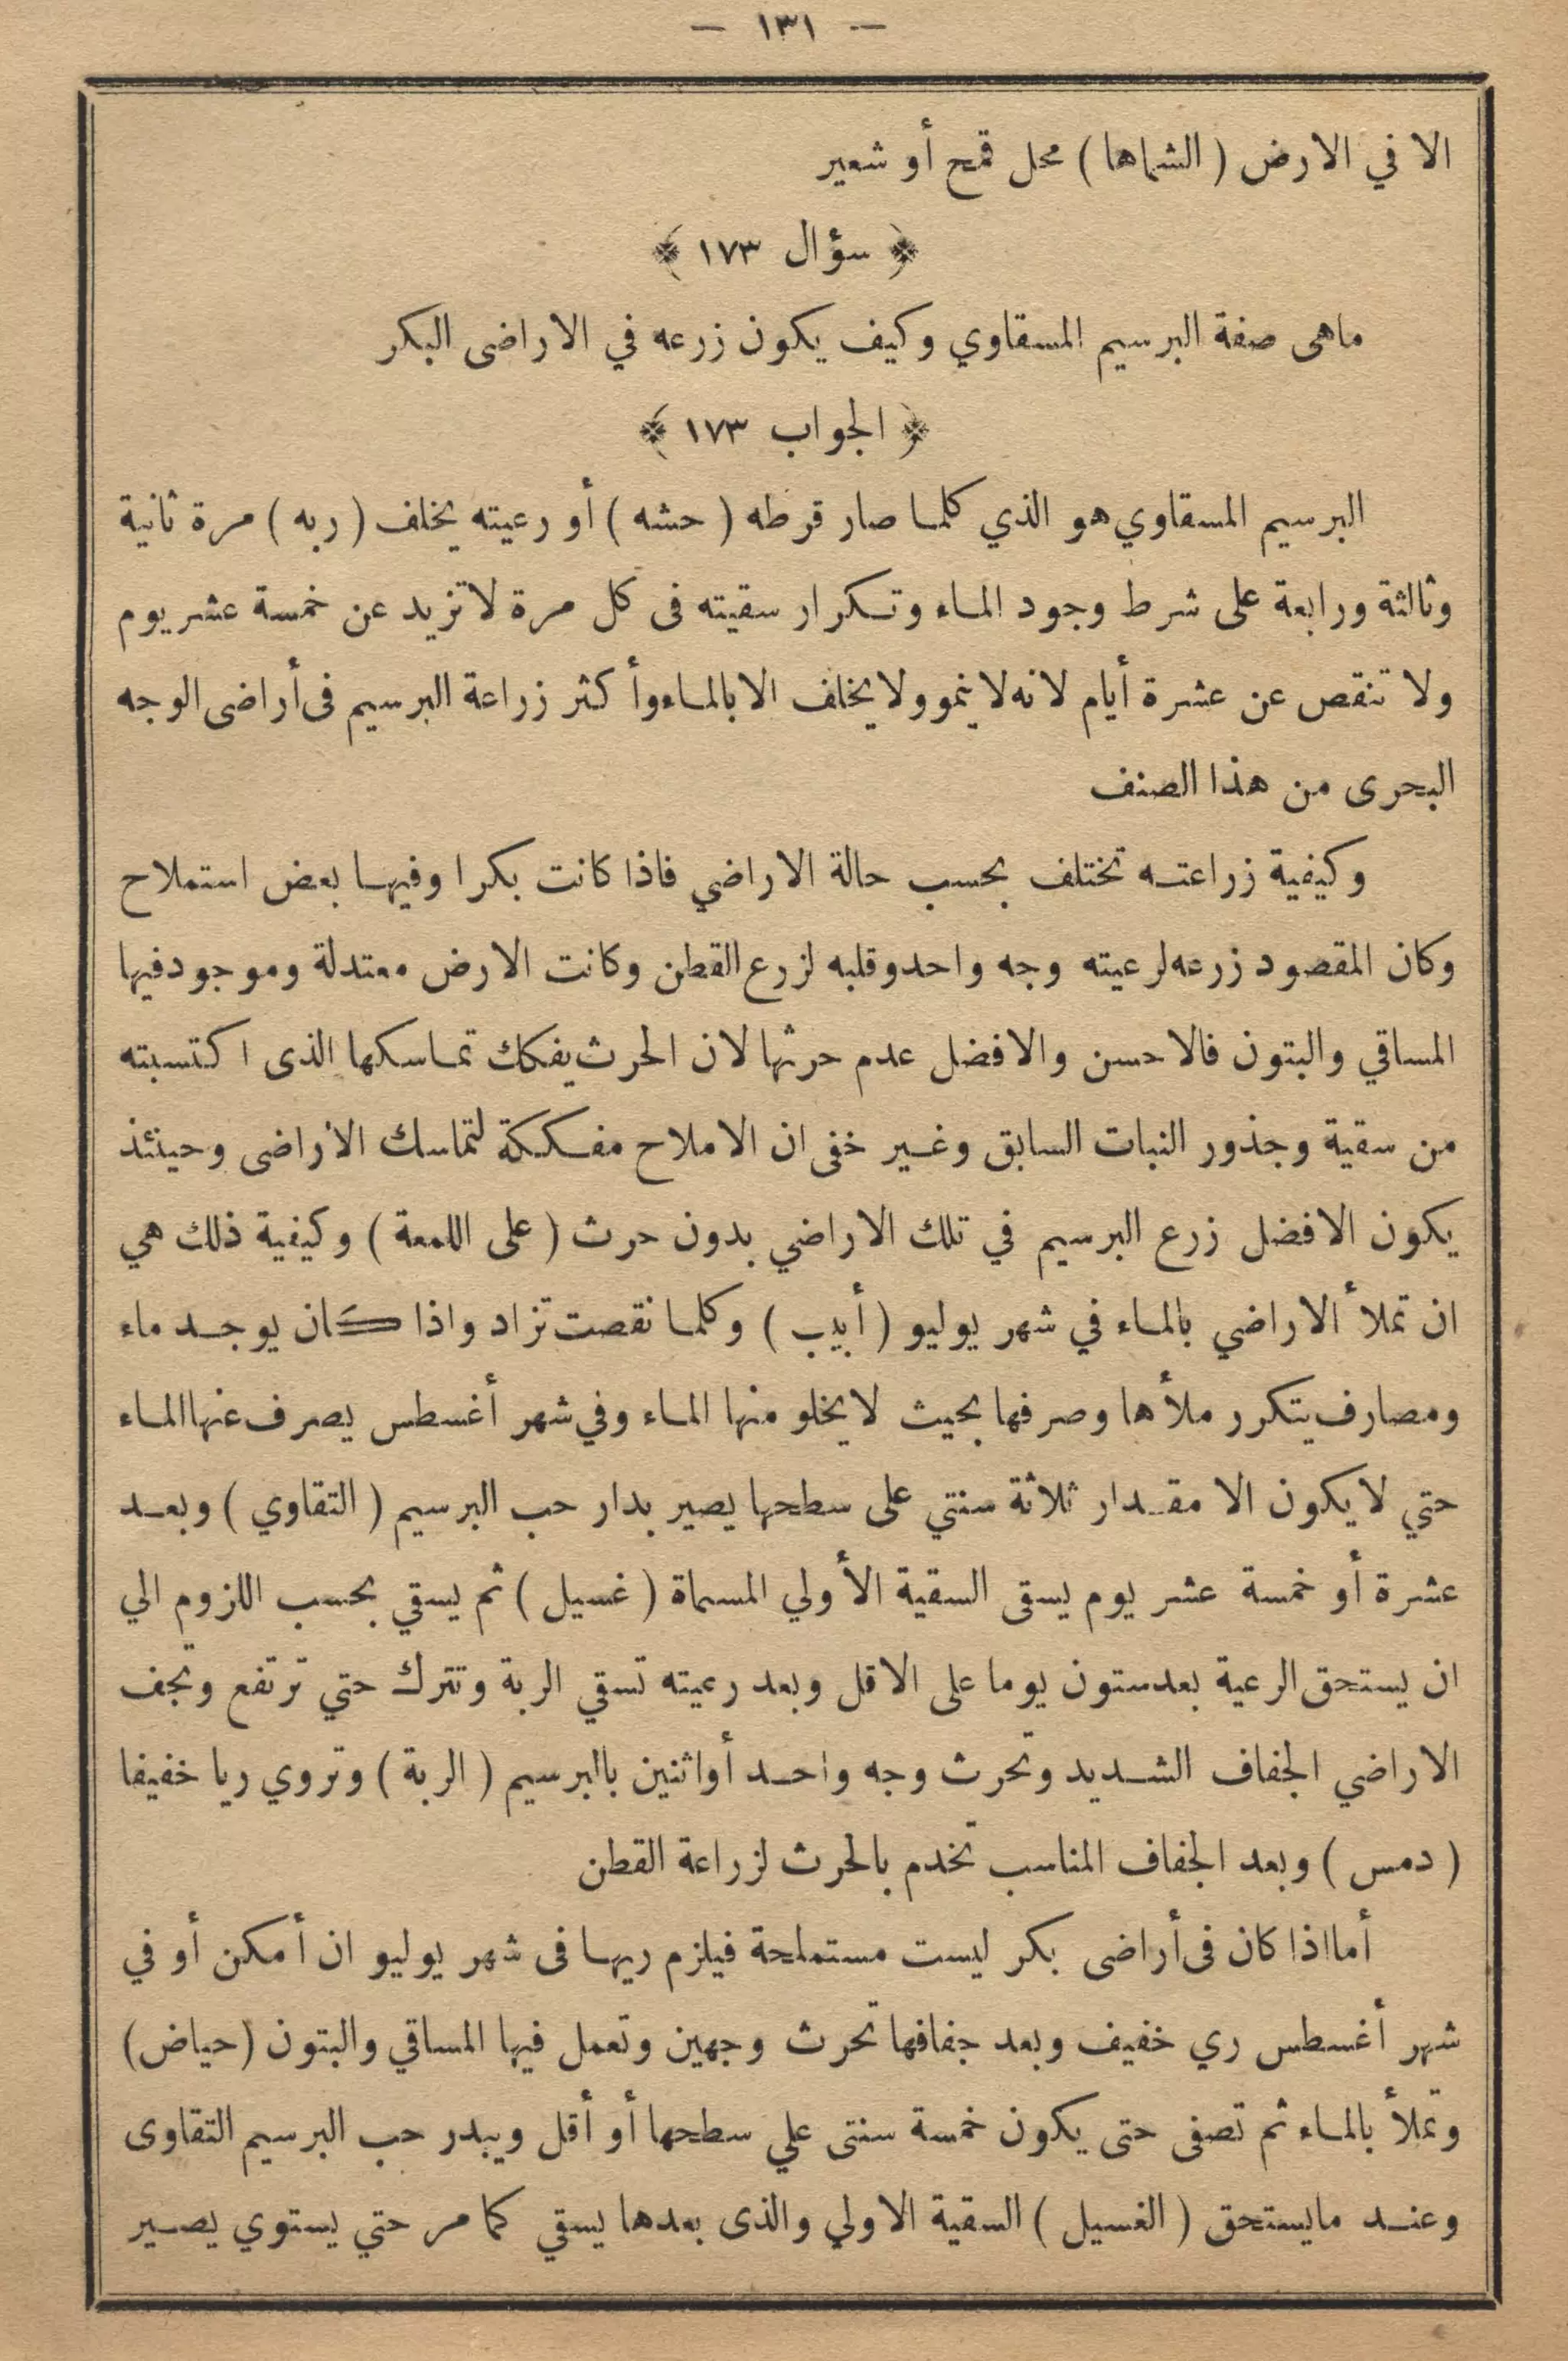 — ١٣١ —
الا في الارض ( الشماها ) محل قمح أو شعير
﴿ سؤال ١٧٣ ﴾
ماهى صفة البرسيم المسقاوي وكيف يكون زرعه في الاراضى البكر
﴿ الجواب ١٧٣ ﴾
البرسيم المسقاوي هو الذي كلما صار قرطه ( حشه ) أو رعيته يخلف ( ربه ) مرة ثانية
وثالثة ورابعة على شرط وجود الماء وتكرار سقيته فى كل مرة لا تزيد عن خمسة عشر يوم
ولا تنقص عن عشرة أيام لانه لا ينمو ولا يخلف الا بالماء وأكثر زراعة البرسيم فى أراضى الوجه
البحرى من هذا الصنف
وكيفية زراعته تختلف بحسب حالة الاراضي فاذا كانت بكرا وفيها بعض استملاح
وكان المقصود زرعه لرعيته وجه واحد وقلبه لزرع القطن وكانت الارض معتدلة وموجود فيها
المساقي والبتون فالاحسن والافضل عدم حرثها لان الحرث يفكك تماسكها الذى اكتسبته
من سقية وجذور النبات السابق وغير خفى ان الاملاح مفككة لتماسك الاراضى وحينئذ
يكون الافضل زرع البرسيم في تلك الاراضي بدون حرث ( على اللمعة ) وكيفية ذلك هي
ان تملأ الاراضي بالماء في شهر يوليو ( أبيب ) وكلما نقصت تزاد واذا كان يوجد ماء
ومصارف يتكرر ملأها وصرفها بحيث لا يخلو منها الماء وفي شهر أغسطس يصرف عنها الماء
حتي لا يكون الا مقدار ثلاثة سنتي على سطحها يصير بدار حب البرسيم ( التقاوي ) وبعد
عشرة أو خمسة عشر يوم يسقى السقية الأولي المسماة ( غسيل ) ثم يسقي بحسب اللزوم الي
ان يستحق الرعية بعد ستون يوما على الاقل وبعد رعيته تسقي الربة وتترك حتي ترتفع وتجف
الاراضي الجفاف الشديد وتحرث وجه واحد أو اثنين بالبرسيم ( الربة ) وتروي ريا خفيفا
( دمس ) وبعد الجفاف المناسب تخدم بالحرث لزراعة القطن
أما اذا كان فى أراضى بكر ليست مستملحة فيلزم ريها فى شهر يوليو ان أمكن أو في
شهر أغسطس ري خفيف وبعد جفافها تحرث وجهين وتعمل فيها المساقي والبتون ( حياض )
وتملأ بالماء ثم تصفى حتى يكون خمسة سنتى علي سطحها أو أقل ويبدر حب البرسيم التقاوى
وعند مايستحق ( الغسيل ) السقية الاولي والذى بعدها يسقي كما مر حتي يستوي يصير